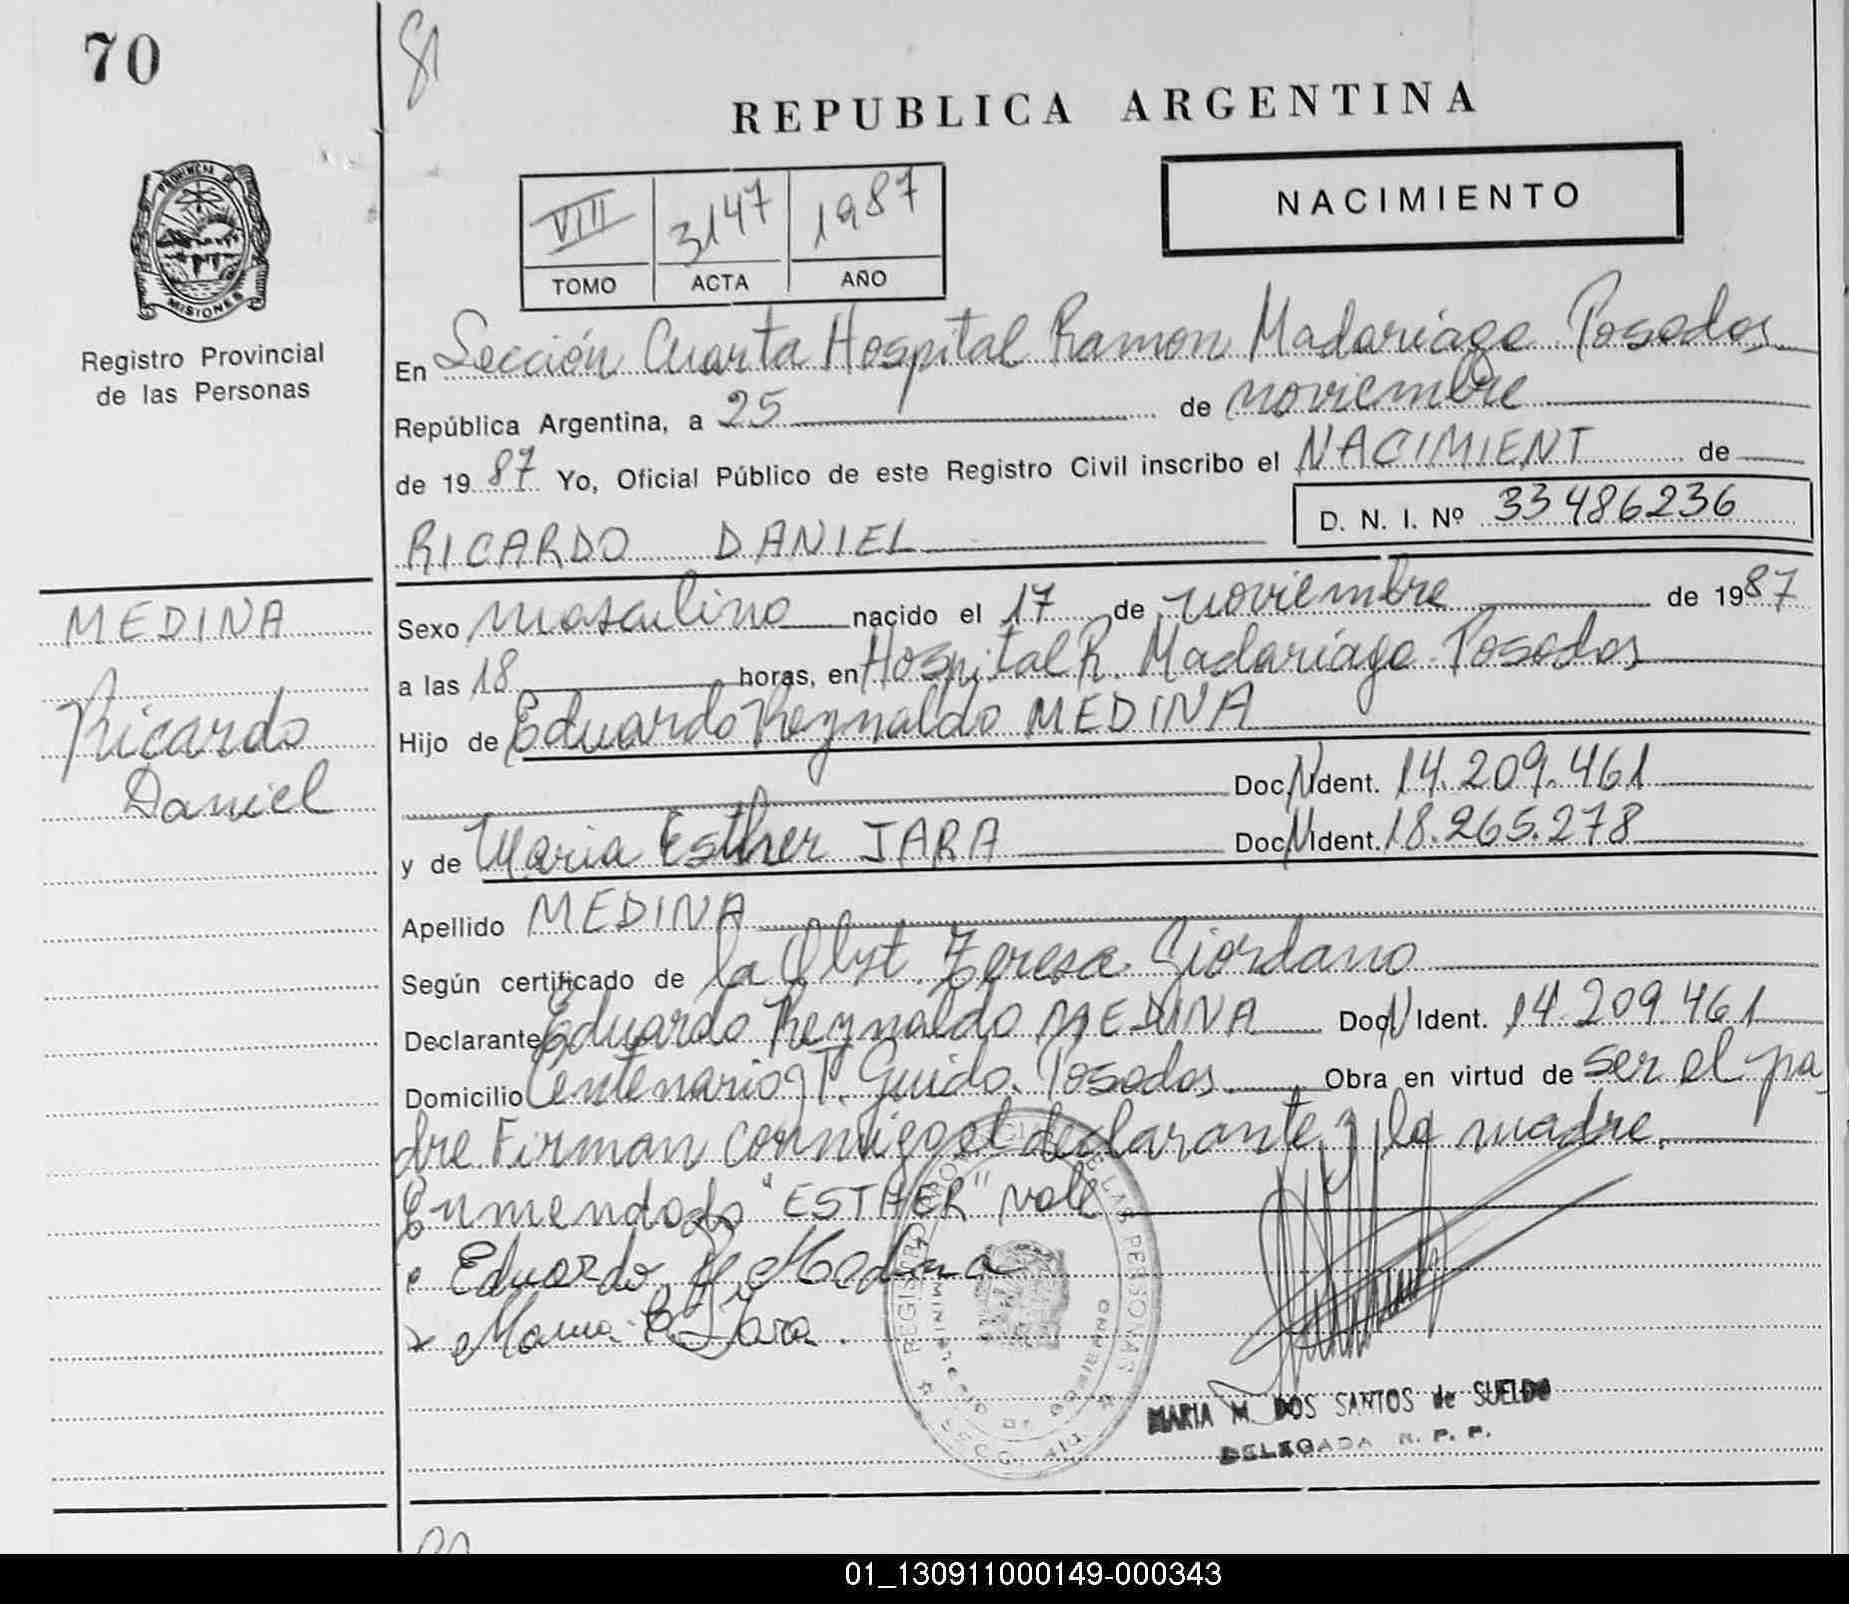 70
81
REPUBLICA ARGENTINA
PROVINCIA DE
MISIONES
Registro Provincial
de las Personas
VIII 3147 1987
TOMO ACTA AÑO
NACIMIENTO
En Sección Cuarta Hospital Ramon Madariaga Posadas
República Argentina, a 25 de noviembre
de 1987 Yo, Oficial Público de este Registro Civil inscribo el NACIMIENT de
RICARDO DANIEL
D. N. I. Nº 33486236
MEDINA
Ricardo
Daniel
Sexo masculino nacido el 17 de noviembre de 1987
a las 18 horas, en Hospital R. Madariaga Posadas
Hijo de Eduardo Reynaldo MEDINA
Doc. N Ident. 14.209.461
y de Maria Esther JARA Doc. N Ident. 18.265.278
Apellido MEDINA
Según certificado de la Obst. Teresa Giordano
Declarante Eduardo Reynaldo MEDINA Doc. N Ident. 14.209.461
Domicilio Centenario y T. Guido. Posadas Obra en virtud de ser el pa
dre Firman conmigo el declarante y la madre.
Enmendado "ESTHER" vale
Eduardo R. Medina
x Maria E. Jara.
MARIA M. DOS SANTOS de SUELDO
DELEGADA R. P. P.
01_130911000149-000343